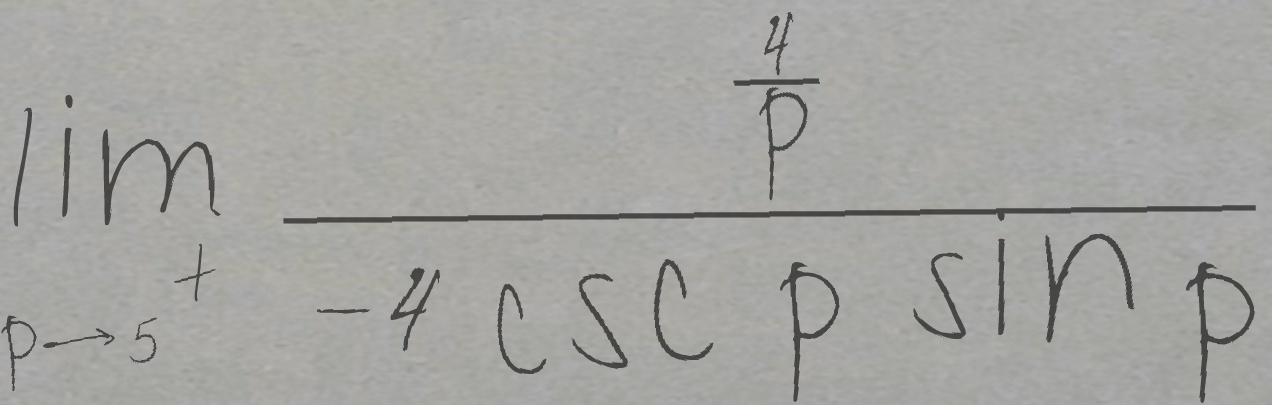 \lim_{p \to 5^+} \frac{\frac{4}{p}}{-4 \csc p \sin p}